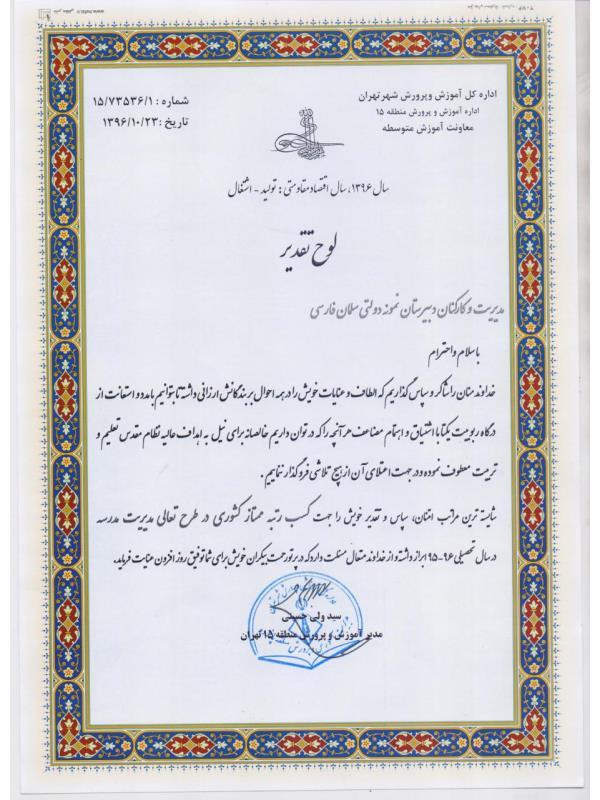 اداره کل آموزش و پرورش شهر تهران
اداره آموزش و پرورش منطقه ۱۵
معاونت آموزش متوسطه
شماره : ۱۵/۷۳۵۳۶/۱
تاریخ : ۱۳۹۶/۱۰/۲۳
سال ۱۳۹۶، سال اقتصاد مقاومتی : تولید - اشتغال
لوح تقدیر
مدیریت و کارکنان دبیرستان نمونه دولتی سلمان فارسی
با سلام و احترام
خداوند منان را شاکر و سپاس گذاریم که الطاف و عنایات خویش را در همه احوال بر بندگانش ارزانی داشته تا بتوانیم با مدد و استعانت از
درگاه ربوبیت یکتا با اشتیاق و اهتمام مضاعف هر آنچه را که در توان داریم خالصانه برای نیل به اهداف عالیه نظام مقدس تعلیم و
تربیت معطوف نموده و در جهت اعتلای آن از هیچ تلاشی فروگذار ننماییم .
شایسته ترین مراتب امتنان، سپاس و تقدیر خویش را جهت کسب رتبه ممتاز کشوری در طرح تعالی مدیریت مدرسه
در سال تحصیلی ۹۶-۹۵ ابراز داشته و از خداوند متعال مسئلت دارد که در پرتو رحمت بیکران خویش برای شما توفیق روز افزون عنایت فرماید.
سید ولی حسینی
مدیر آموزش و پرورش منطقه ۱۵ تهران